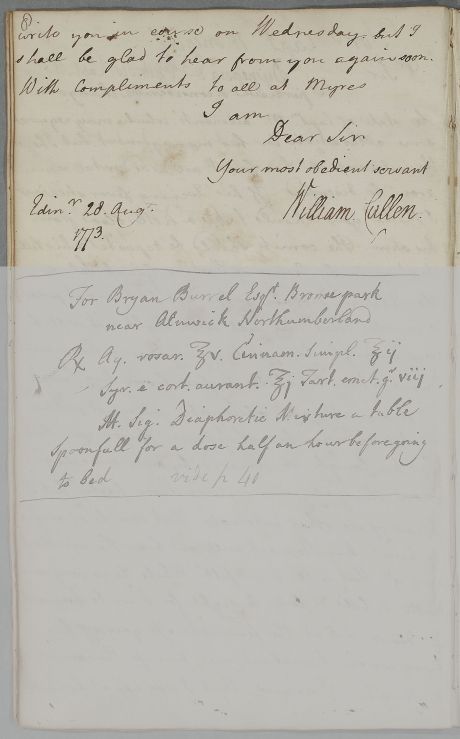 write you in course on Wednesday. but I
shall be glad to hear from you again soon.
With compliments to all at Myres
I am
Dear Sir
Your most obedient servant
Edinr. 28. Aug.
1773.
William Cullen.
For Bryan Burrel Esqr. Broome park
near Alnwick Northumberland
Rx Aq. rosar. ℥v. Cinnam. simpl. ℥ij
Syr. e cort. aurant. ℥j Tart. emet. gr viij
M. Sig. Diaphoretic Mixture a table
spoonfull for a dose half an hour before going
to bed vide p 40